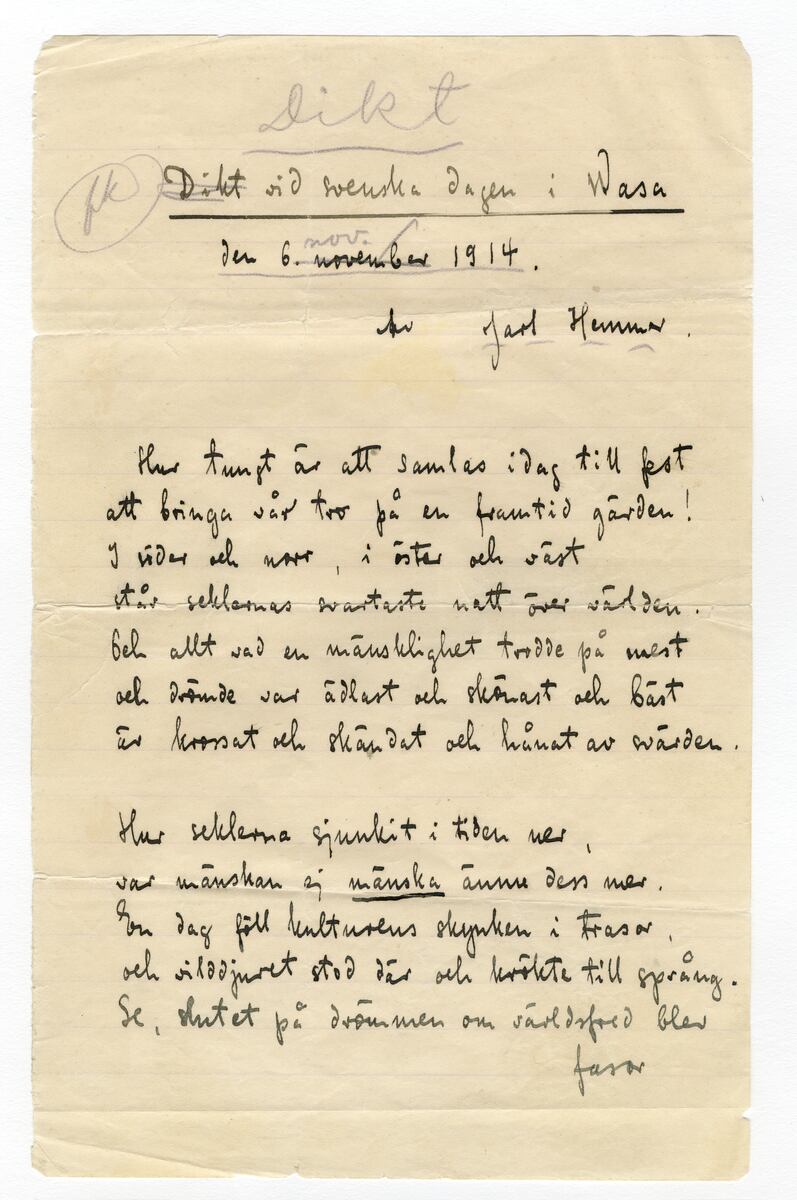 Dikt
fk
Dikt vid svenska dagen i Wasa
nov.
den 6. november 1914.
Av Jarl Hemmer.
Hur tungt är att samlas idag till fest
att bringa vår tro på en framtid gärden!
I söder och norr, i öster och väst
står seklernas svartaste natt över världen.
Och allt vad en mänsklighet trodde på mest
och drömde var ädlast och skönast och bäst
är krossat och skändat och hånat av svärden.
Hur seklerna sjunkit i tiden ner,
var mänskan ej mänska ännu dess mer.
En dag föll kulturens skynken i trasor,
och vilddjuret stod där och krökte till språng.
Se, slutet på drömmen om världsfred blev
fasor